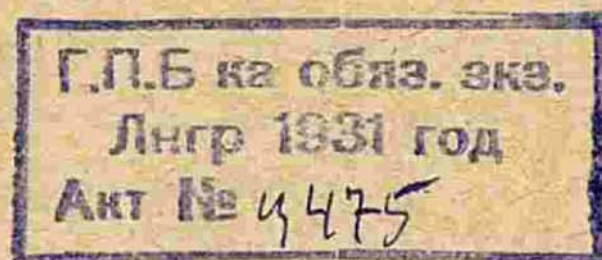 Г.П.Б ка обяз. экз.
Лнгр 1931 год
Акт № 4475